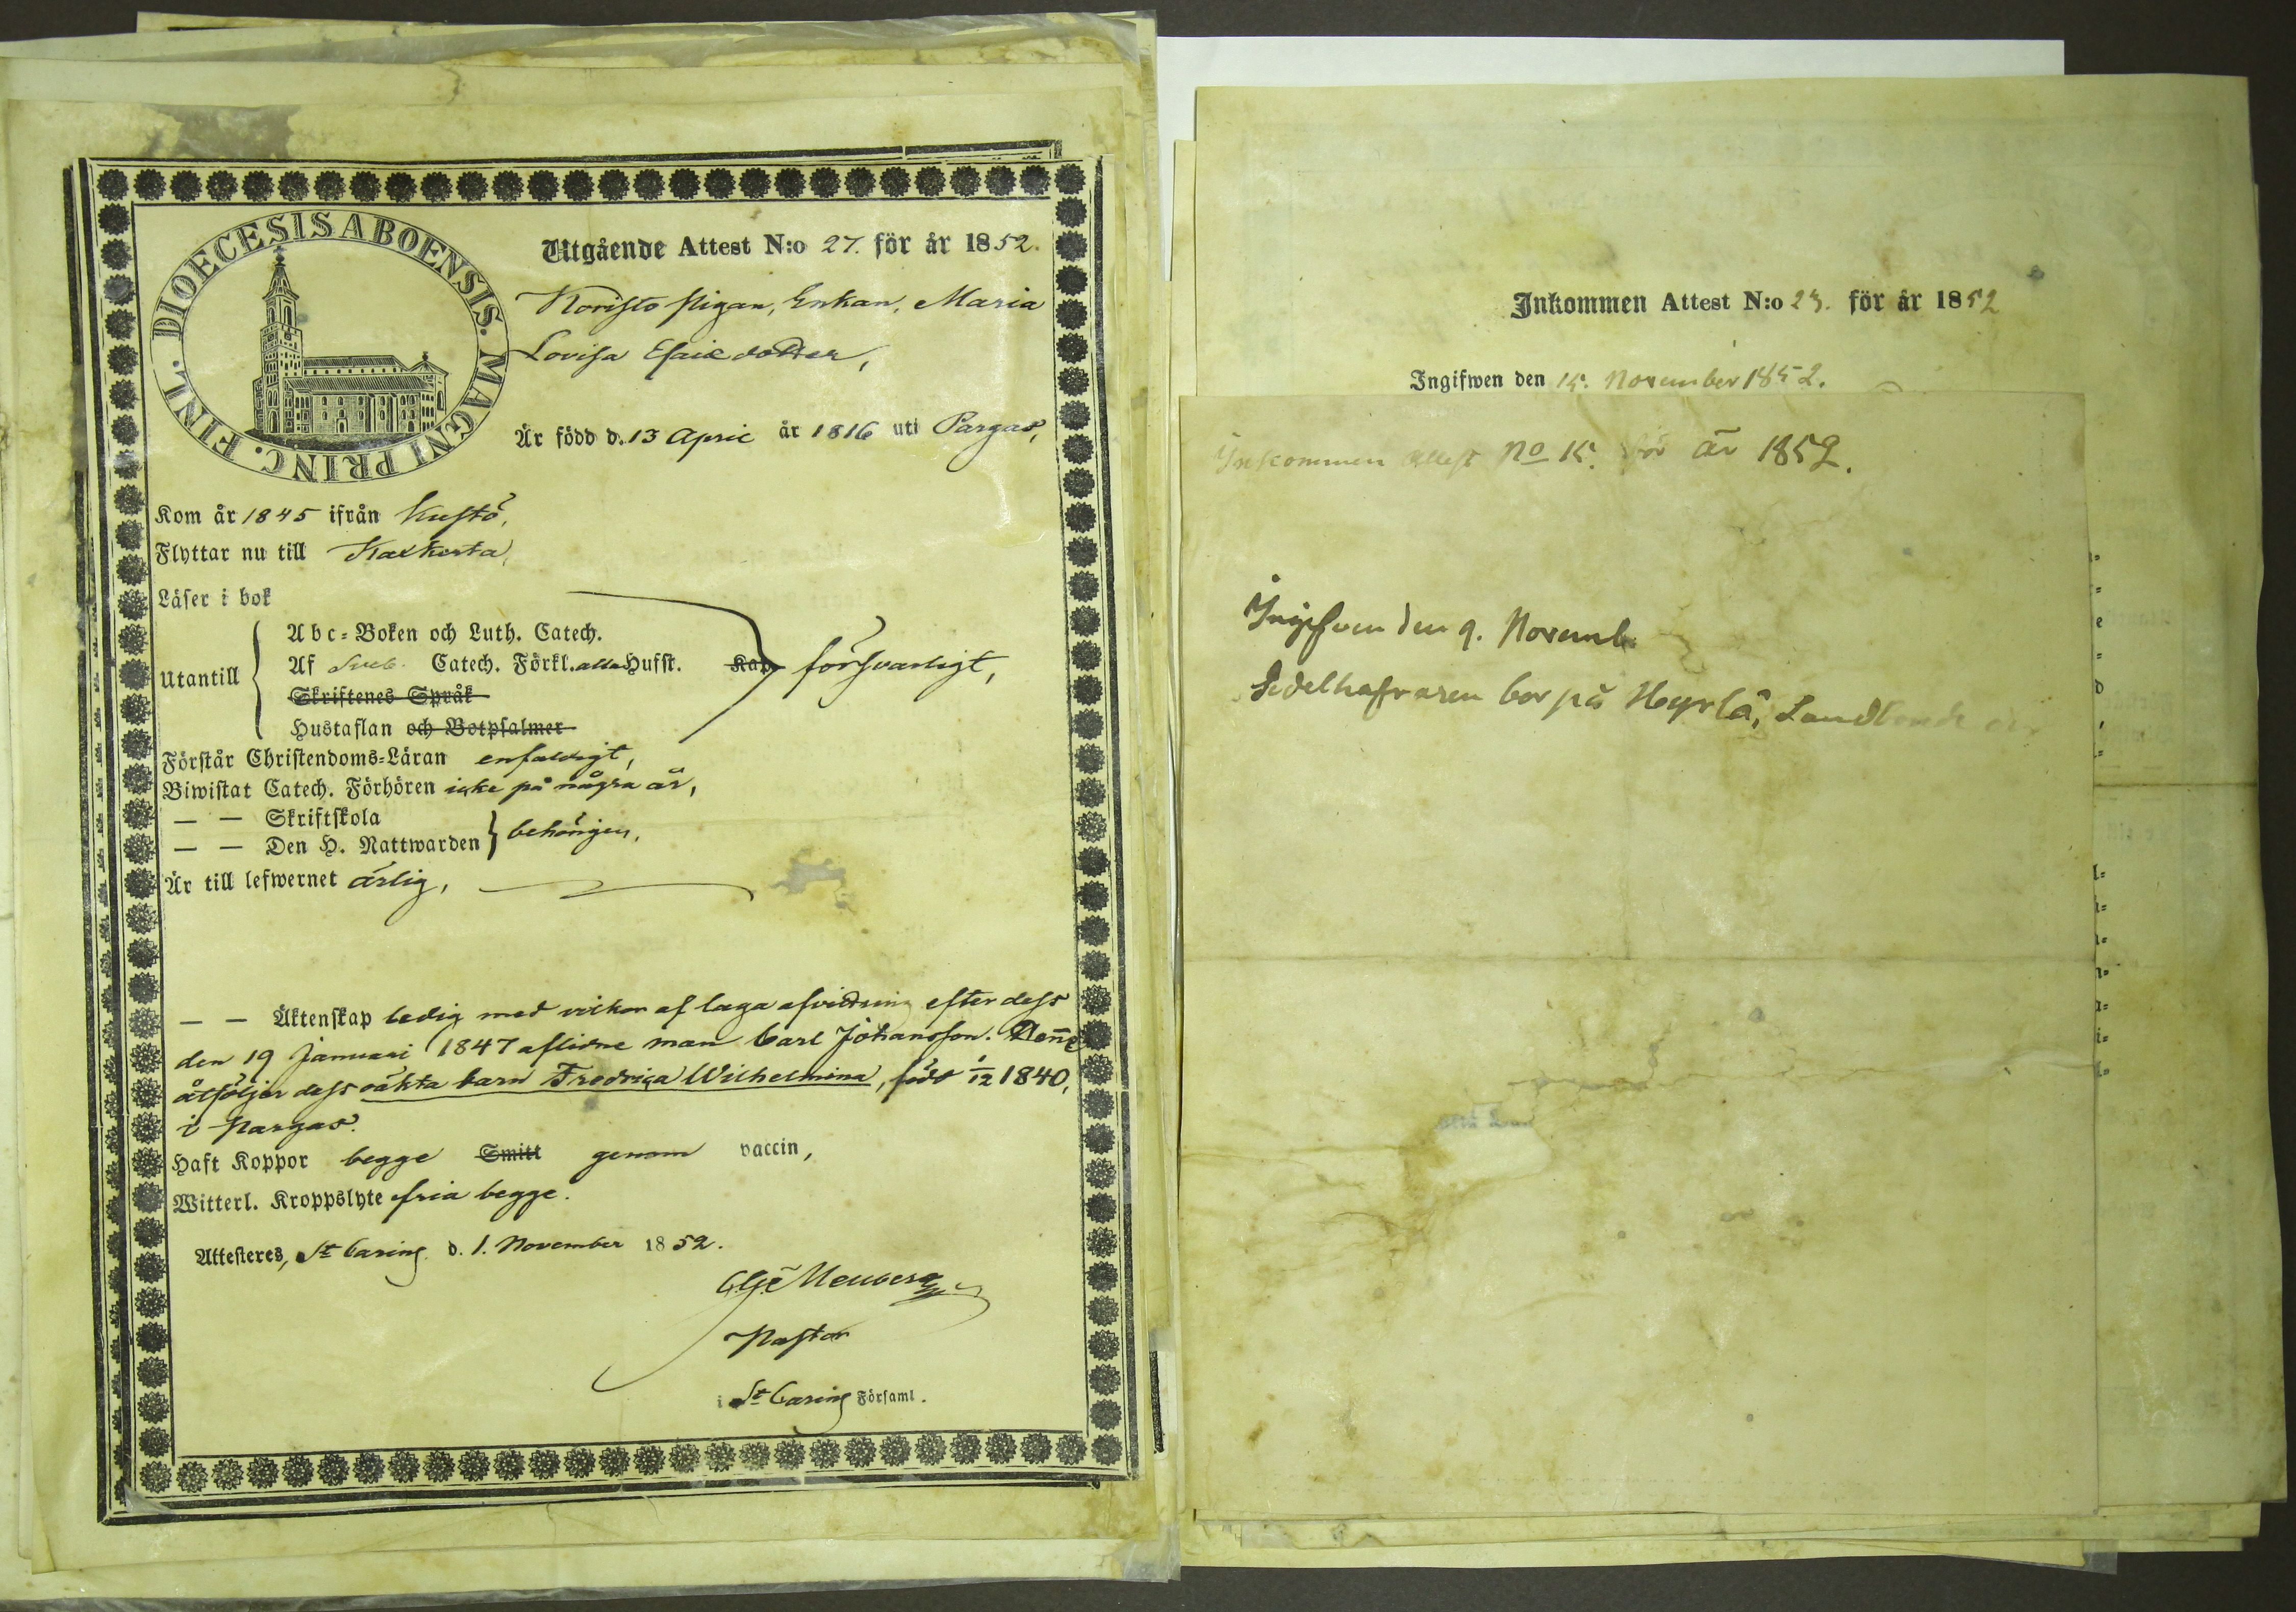 DIOECESIS ABOENSIS. MAGNI PRINC. FINL.
Utgående Attest N:o 27. för år 1852.
Koristo pigan, Enkan, Maria
Lovisa Esaiædotter,
Är född d. 13 April år 1816 uti Pargas,
Kom år 1845 ifrån Kustö,
Flyttar nu till Kaxkerta,
Läser i bok
Utantill
Abc-Boken och Luth. Catech.
Af Sveb. Catech. Förkl. alla Hufst. Kap. försvarligt,
Skriftenes Språk
Hustaflan och Botpsalmer
Förstår Christendoms-Läran enfaldigt,
Biwistat Catech. Förhören icke på några år,
— — Skriftskola
— — Den H. Nattwarden behörigen,
Är till lefwernet ärlig,
— — Äktenskap ledig med vilkor af laga afvittring efter dess
den 19 Januari 1847 aflidne man Carl Johansson. Denne
åtföljer dess oäkta barn Fredrica Wilhelmina, född 1/12 1840,
i Pargas.
Haft Koppor begge Smitt genom vaccin,
Witterl. Kroppslyte fria begge.
Attesteres, St Carins d. 1. November 1852.
Pastor
i St Carins Församl.
Inkommen Attest N:o 23. för år 1852
Ingifwen den 15. November 1852.
Inkommen Attest No 15. för år 1852.
Ingifven den 9. Novemb.
Sedelhafvaren bor på Heyrlä, Landbonde